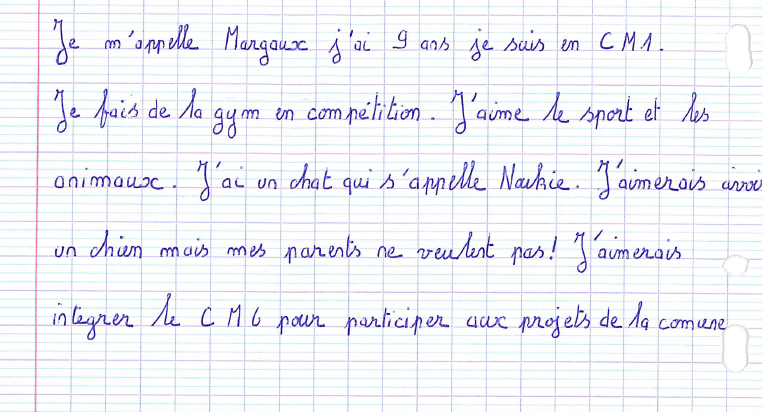 Je m'appelle Margaux j'ai 9 ans je suis en CM1.
Je fais de la gym en compétition. J'aime le sport et les
animaux. J'ai un chat qui s'appelle J'aimerais avoi
un chien mais mes parents ne veulent pas! J'aimerais
intégrer le CM6 pour participer aux projets de la comune